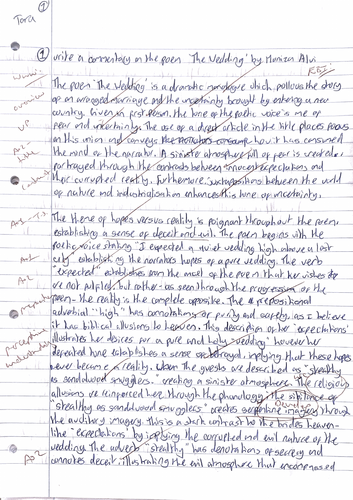 Tora
①
① write a commentary on the poem 'The Wedding' by Moniza Alvi
The poem 'The Wedding' is a dramatic monologue which follows the story
overview of an arranged marriage and the uncertainty brought by entering a new
country. Given in first person, the tone of the poetic voice is one of
fear and uncertainty. The use of a direct article in the title places focus
on this union and conveys how it has consumed
the mind of the narrator. A sinister atmosphere full of fear is created
portrayed through the contrasts between innocent expectations and
the corrupted reality. Furthermore, juxtaposition between the world
of nature and industrialisation enhances this tone of uncertainty.
The theme of hopes versus reality is poignant throughout the poem
establishing a sense of deceit and evil. The poem begins with the
poetic voice stating "I expected a quiet wedding high above a lost
city" establishing the narrators hopes of a pure wedding. The verb
"expected" establishes from the onset of the poem that her wishes
are not fulfilled but rather as seen through the progression of the
poem - the reality is the complete opposite. The prepositional
adverbial "high" has connotations of purity and safety, as I believe
it has biblical illusions to heaven. This description of her 'expectations'
illustrates her desires for a pure and holy wedding however her
defeated tone establishes a sense of implying that these hopes
never became a reality. When the guests are described as "stealthy
as sandalwood smugglers" creating a sinister atmosphere. The religious
allusions are reinforced here through the phonology. The sibilance of
"stealthy as sandalwood smugglers" creates serpentine imagery through
the auditory imagery. This is a stark contrast to the brides heaven-
like "expectations" by implying the corrupted and evil nature of the
wedding. The adverb "stealthy" has denotations of secrecy and
connotes deceit, illustrating the evil atmosphere that encompassed